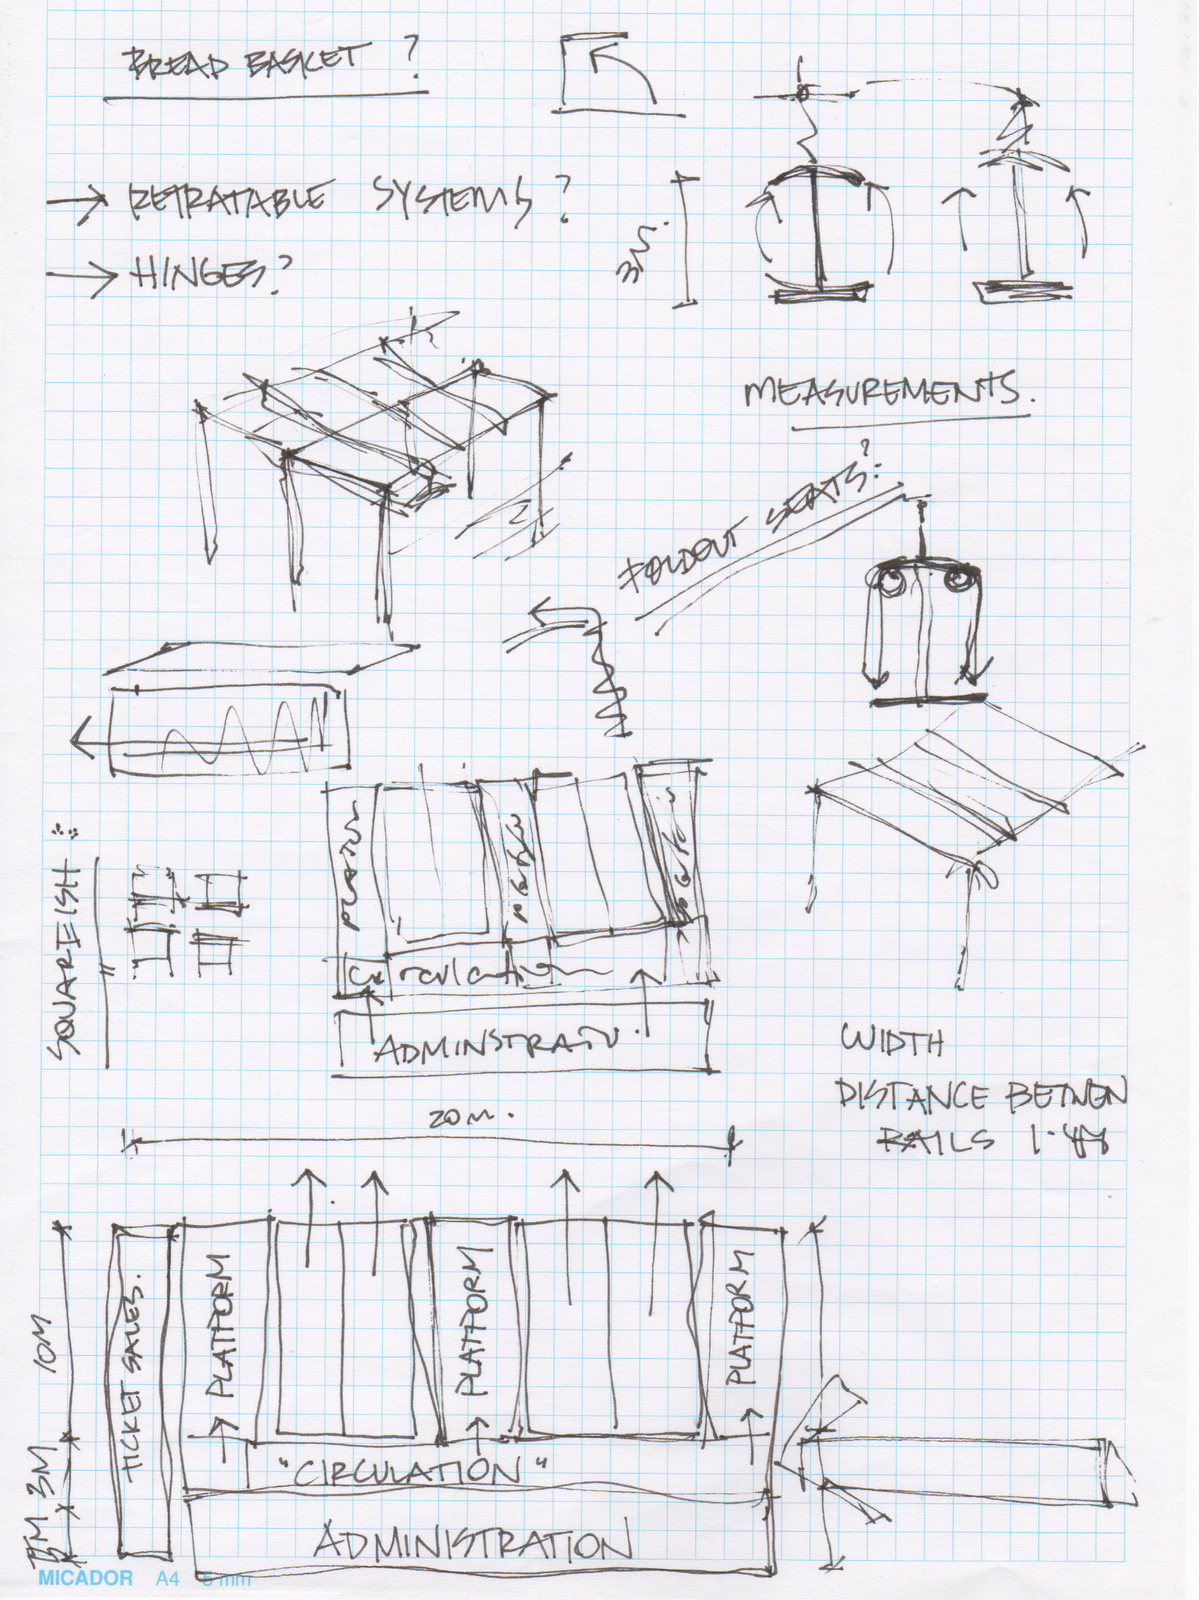 BREAD BASKET ?
→ RETRATABLE SYSTEMS ?
→ HINGES?
3M.
MEASUREMENTS.
FOLDOUT SEATS?
SQUAREISH
PLATFORM
Circulation
ADMINSTRATO
WIDTH
DISTANCE BETWEN
RAILS 1.48
20M.
TICKET SALES.
PLATFORM
PLATFORM
PLATFORM
10M
3M
"CIRCULATION"
ADMINISTRATION
MICADOR A4 5 mm